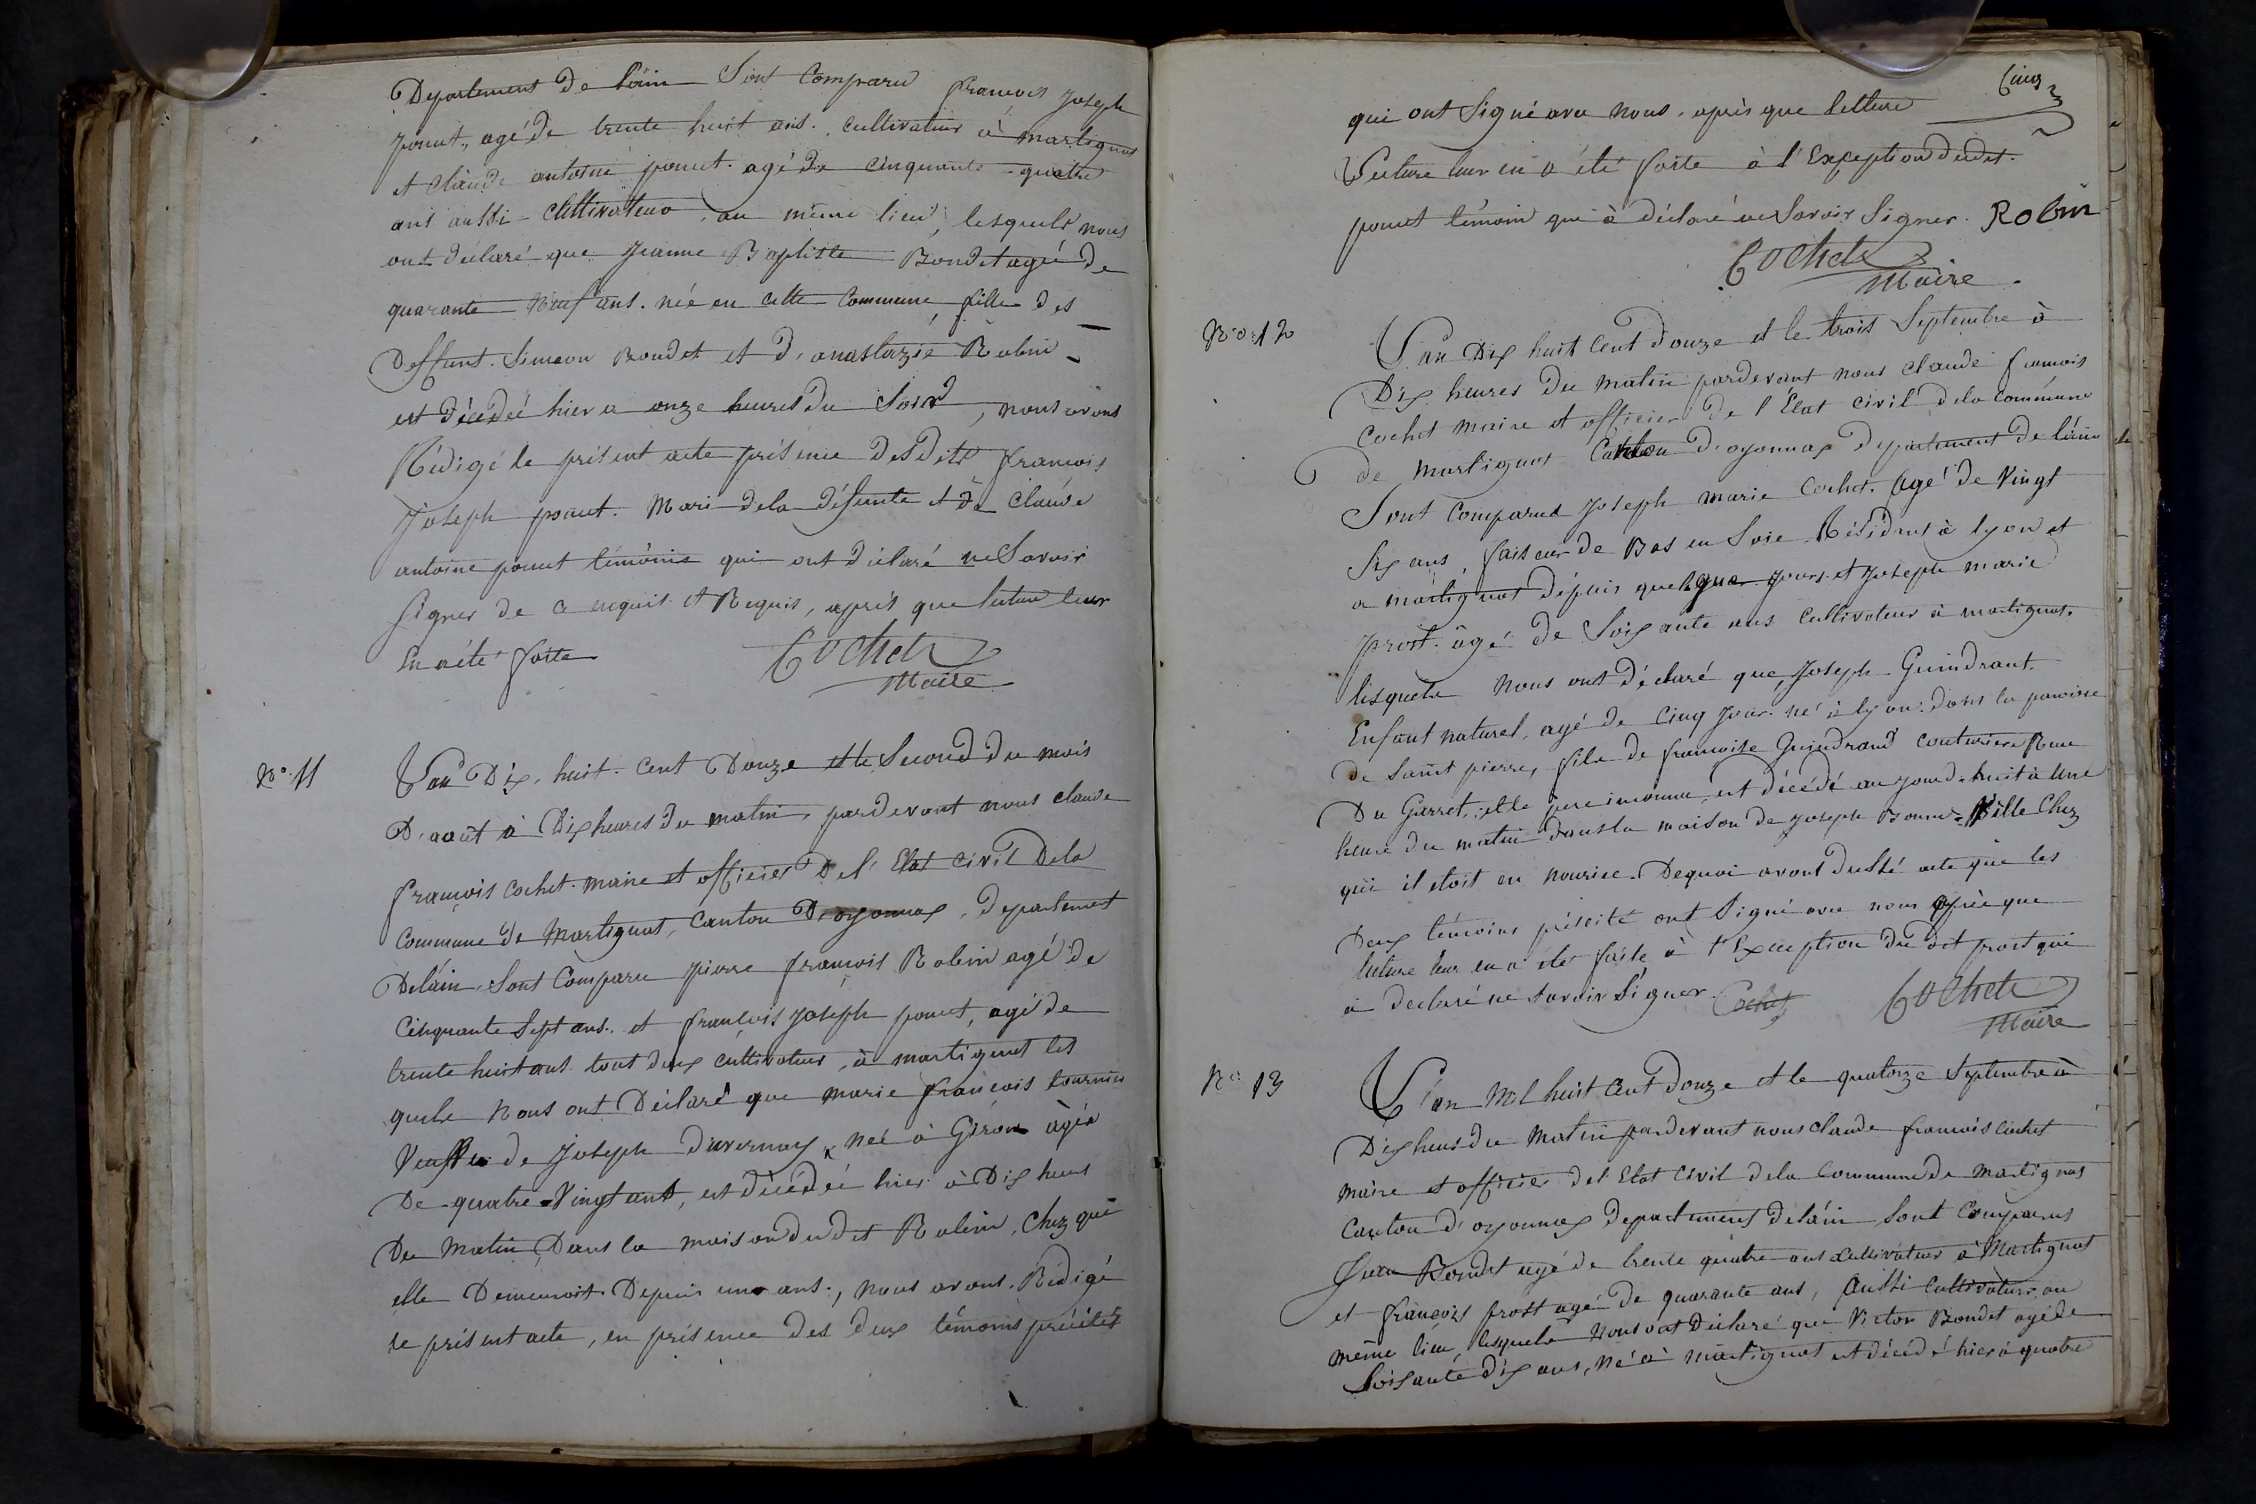 Departement De l'ain Sont Comparu francois Joseph
ponut, agé de trente huit ans. cultivateur à martignat
et claude antoine ponut. agé de cinquante-quatre
ans aussi cultivateur, au même lieu, lesquels nous
ont déclaré que Jeanne Baptiste Bondet agé de
quarante neuf ans. née en cette Commune, fille des
Deffunt. Simeon Bondet et d'anastazie Robin
est décedée hier a onze heures du Soir, nous avons
Rédigé le présent acte présence Desdits francois
Joseph ponut. Mari de la défunte et De Claude
antoine ponut témoins qui ont déclaré ne Savoir
Signer de a enquis et Requis, après que lecture leur
En a été faitte Cochet
Maire
No. 11
L'an Dix, huit. Cent Douze et le Second du mois
D'août à Dix heures du matin, pardevant nous claude
françois cochet. maire et officier De l'Etat civil Dela
Commune de Martignat, Canton D'oyonnax, departement
Delain, Sont Comparu pierre françois Robin agé de
Cinquante Sept ans. et françois Joseph ponut, agé de
trente huit ans tout deux cultivateur, à martignat les
quels Nous ont Déclaré que marie françois tournier
Veuffve de Joseph Duvernay, Neé à Giron àgée
De quatre-Vingt ans, est décédée hier à Dix heurs
Du Matin, Dans la maison dudit Robin, Chez qui
elle Demeuroit Depuis un ans., nous avons Rédigé
le présent acte, en présence des deux témoins précités
Cinq
qui ont Signé avec nous. après que lecture
Lecture leur en a été faite à l'Exception dudet.
ponut témoin qui à déclaré ne Savoir Signer. Robin
Cochet
Maire
No. 12
L'an Dix huit Cent Douze et le trois Septembre à
Dix heures Du matin pardevant nous claude francois
Cochet maire et officier de l'État civil dela commune
de Martignat Canton D'oyonnax Departement De l'ain
Sont Comparus Joseph marie Cochet, Agé de Vingt
Six ans, faiseur de Bas en Soie Résidant à lyon et
a martignat dépuis quelque jours. et Joseph marie
prost. âgé de Soixante ans Cultivateur à martignat.
lesquels Nous ont déclaré que, Joseph Guindrant
Enfant naturel, agé de Cinq Jour. né à lyon. dans la paroisse
De Saint pierre, fils de francoise Guindrand couturiere Rue
Du Garret, et le pere inconnu, est décédé aujourd-huit à Une
heure du matin dans la maison de Joseph Bonne-Ville Chez
qui il etoit en nourice. Dequoi avons dressé acte que les
Deux témoins précité ont Signé avec nous après que
lecture leur en a été faite à l'Exception du dit prost qui
à declaré ne Savoir Signer. Cochet Cochet
Maire
No. 13
L'an Mil huit Cent Douze et le quatorze Septembre à
Dix heurs du Matin pardevant nous claude francois Cochet
maire et officier del Etat Civil dela Commune de martignat
Canton d'oyonnax departement delain Sont Comparus
Jean Bondet agé de trente quatre ans cultivateur à Martignat
et françois prost agé de quarante ans, aussi Cultivateur, au
même lieu, lesquels Nous ont Déclaré que Victor Bondet agé de
Soisante dix ans, Né à martignat est décédé hier à quatre